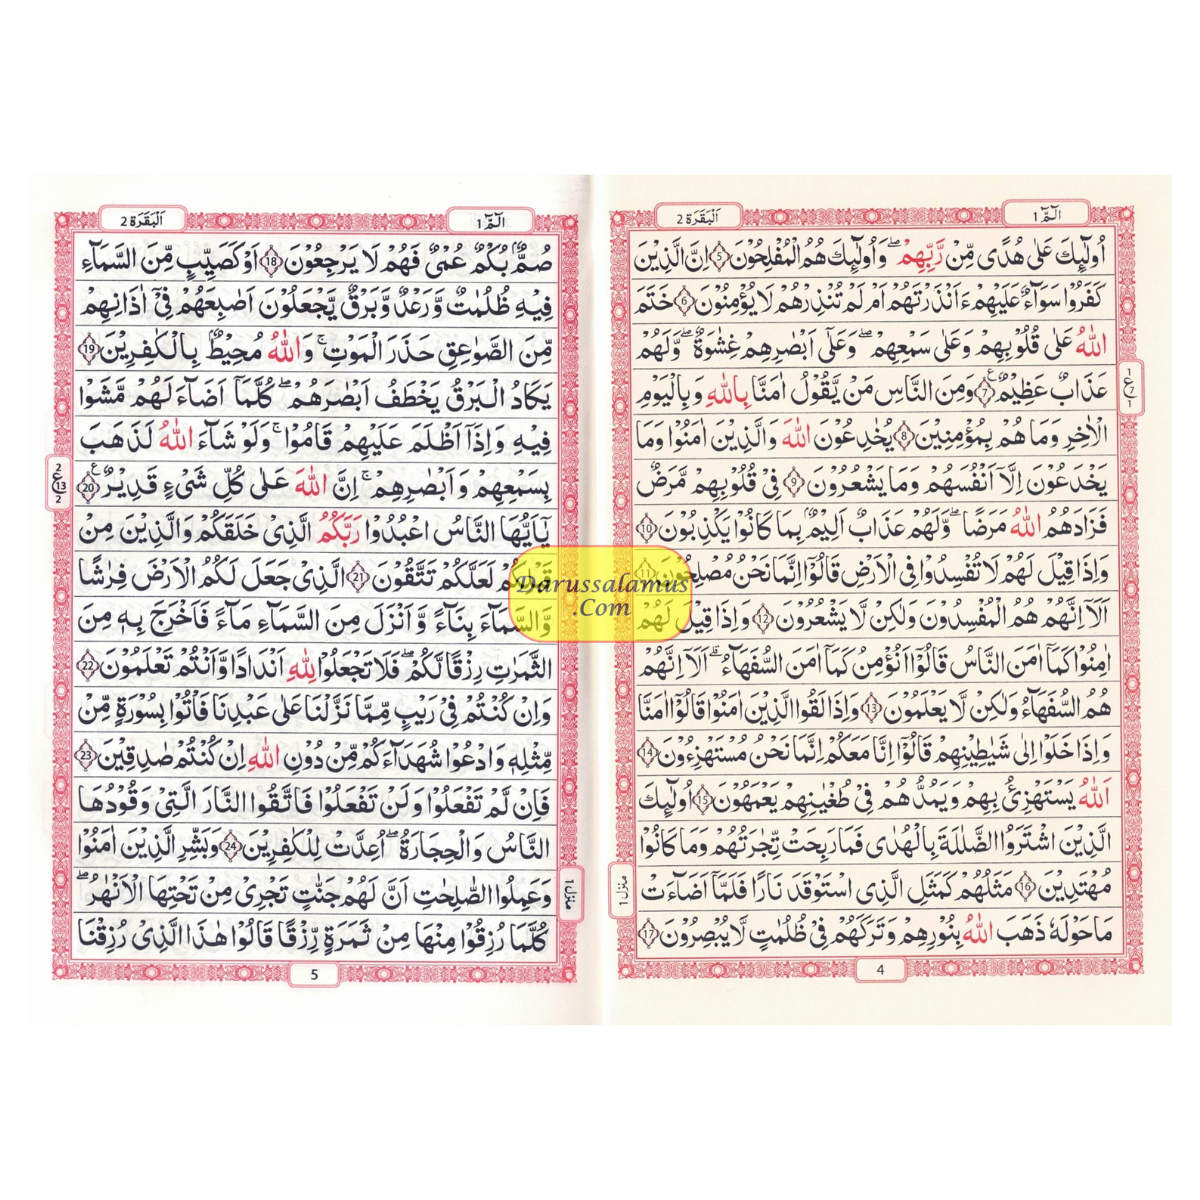 الٓمّٓ 1
اَلْبَقَرَة 2
اُولٰٓئِكَ عَلٰى هُدًى مِّنْ رَّبِّهِمْ ۖ وَاُولٰٓئِكَ هُمُ الْمُفْلِحُوْنَ 5 اِنَّ الَّذِيْنَ
كَفَرُوْا سَوَآءٌ عَلَيْهِمْ ءَاَنْذَرْتَهُمْ اَمْ لَمْ تُنْذِرْهُمْ لَا يُؤْمِنُوْنَ 6 خَتَمَ
اللّٰهُ عَلٰى قُلُوْبِهِمْ وَعَلٰى سَمْعِهِمْ ۖ وَعَلٰٓى اَبْصٰرِهِمْ غِشٰوَةٌ ۖ وَّلَهُمْ
عَذَابٌ عَظِيْمٌ 7 وَمِنَ النَّاسِ مَنْ يَّقُوْلُ اٰمَنَّا بِاللّٰهِ وَبِالْيَوْمِ
الْاٰخِرِ وَمَا هُمْ بِمُؤْمِنِيْنَ 8 يُخٰدِعُوْنَ اللّٰهَ وَالَّذِيْنَ اٰمَنُوْا وَمَا
يَخْدَعُوْنَ اِلَّآ اَنْفُسَهُمْ وَمَا يَشْعُرُوْنَ 9 فِيْ قُلُوْبِهِمْ مَّرَضٌ
فَزَادَهُمُ اللّٰهُ مَرَضًا ۖ وَّلَهُمْ عَذَابٌ اَلِيْمٌ بِمَا كَانُوْا يَكْذِبُوْنَ 10
وَاِذَا قِيْلَ لَهُمْ لَا تُفْسِدُوْا فِى الْاَرْضِ قَالُوْٓا اِنَّمَا نَحْنُ مُصْلِحُوْنَ 11
اَلَآ اِنَّهُمْ هُمُ الْمُفْسِدُوْنَ وَلٰكِنْ لَّا يَشْعُرُوْنَ 12 وَاِذَا قِيْلَ لَهُمْ
اٰمِنُوْا كَمَآ اٰمَنَ النَّاسُ قَالُوْٓا اَنُؤْمِنُ كَمَآ اٰمَنَ السُّفَهَآءُ ۗ اَلَآ اِنَّهُمْ
هُمُ السُّفَهَآءُ وَلٰكِنْ لَّا يَعْلَمُوْنَ 13 وَاِذَا لَقُوا الَّذِيْنَ اٰمَنُوْا قَالُوْٓا اٰمَنَّا
وَاِذَا خَلَوْا اِلٰى شَيٰطِيْنِهِمْ قَالُوْٓا اِنَّا مَعَكُمْ اِنَّمَا نَحْنُ مُسْتَهْزِءُوْنَ 14
اَللّٰهُ يَسْتَهْزِئُ بِهِمْ وَيَمُدُّهُمْ فِيْ طُغْيٰنِهِمْ يَعْمَهُوْنَ 15 اُولٰٓئِكَ
الَّذِيْنَ اشْتَرَوُا الضَّلٰلَةَ بِالْهُدٰى فَمَا رَبِحَتْ تِّجٰرَتُهُمْ وَمَا كَانُوْا
مُهْتَدِيْنَ 16 مَثَلُهُمْ كَمَثَلِ الَّذِى اسْتَوْقَدَ نَارًا فَلَمَّآ اَضَآءَتْ
مَا حَوْلَهٗ ذَهَبَ اللّٰهُ بِنُوْرِهِمْ وَتَرَكَهُمْ فِيْ ظُلُمٰتٍ لَّا يُبْصِرُوْنَ 17
1
ع
7
1
منزل 1
4
الٓمّٓ 1
اَلْبَقَرَة 2
صُمٌّۢ بُكْمٌ عُمْيٌ فَهُمْ لَا يَرْجِعُوْنَ 18 اَوْ كَصَيِّبٍ مِّنَ السَّمَآءِ
فِيْهِ ظُلُمٰتٌ وَّرَعْدٌ وَّبَرْقٌ يَّجْعَلُوْنَ اَصٰبِعَهُمْ فِيْٓ اٰذَانِهِمْ
مِّنَ الصَّوٰعِقِ حَذَرَ الْمَوْتِ ۚ وَاللّٰهُ مُحِيْطٌۢ بِالْكٰفِرِيْنَ 19
يَكَادُ الْبَرْقُ يَخْطَفُ اَبْصٰرَهُمْ ۖ كُلَّمَآ اَضَآءَ لَهُمْ مَّشَوْا
فِيْهِ وَاِذَآ اَظْلَمَ عَلَيْهِمْ قَامُوْا ۚ وَلَوْ شَآءَ اللّٰهُ لَذَهَبَ
بِسَمْعِهِمْ وَاَبْصٰرِهِمْ ۚ اِنَّ اللّٰهَ عَلٰى كُلِّ شَيْءٍ قَدِيْرٌ 20
يٰٓاَيُّهَا النَّاسُ اعْبُدُوْا رَبَّكُمُ الَّذِيْ خَلَقَكُمْ وَالَّذِيْنَ مِنْ
قَبْلِكُمْ لَعَلَّكُمْ تَتَّقُوْنَ 21 الَّذِيْ جَعَلَ لَكُمُ الْاَرْضَ فِرٰشًا
وَّالسَّمَآءَ بِنَآءً وَّاَنْزَلَ مِنَ السَّمَآءِ مَآءً فَاَخْرَجَ بِهٖ مِنَ
الثَّمَرٰتِ رِزْقًا لَّكُمْ ۖ فَلَا تَجْعَلُوْا لِلّٰهِ اَنْدَادًا وَّاَنْتُمْ تَعْلَمُوْنَ 22
وَاِنْ كُنْتُمْ فِيْ رَيْبٍ مِّمَّا نَزَّلْنَا عَلٰى عَبْدِنَا فَاْتُوْا بِسُوْرَةٍ مِّنْ
مِّثْلِهٖ وَادْعُوْا شُهَدَآءَكُمْ مِّنْ دُوْنِ اللّٰهِ اِنْ كُنْتُمْ صٰدِقِيْنَ 23
فَاِنْ لَّمْ تَفْعَلُوْا وَلَنْ تَفْعَلُوْا فَاتَّقُوا النَّارَ الَّتِيْ وَقُوْدُهَا
النَّاسُ وَالْحِجَارَةُ ۖ اُعِدَّتْ لِلْكٰفِرِيْنَ 24 وَبَشِّرِ الَّذِيْنَ اٰمَنُوْا
وَعَمِلُوا الصّٰلِحٰتِ اَنَّ لَهُمْ جَنّٰتٍ تَجْرِيْ مِنْ تَحْتِهَا الْاَنْهٰرُ ۖ
كُلَّمَا رُزِقُوْا مِنْهَا مِنْ ثَمَرَةٍ رِّزْقًا قَالُوْا هٰذَا الَّذِيْ رُزِقْنَا
2
ع
13
2
منزل 1
5
Darussalamus
.Com